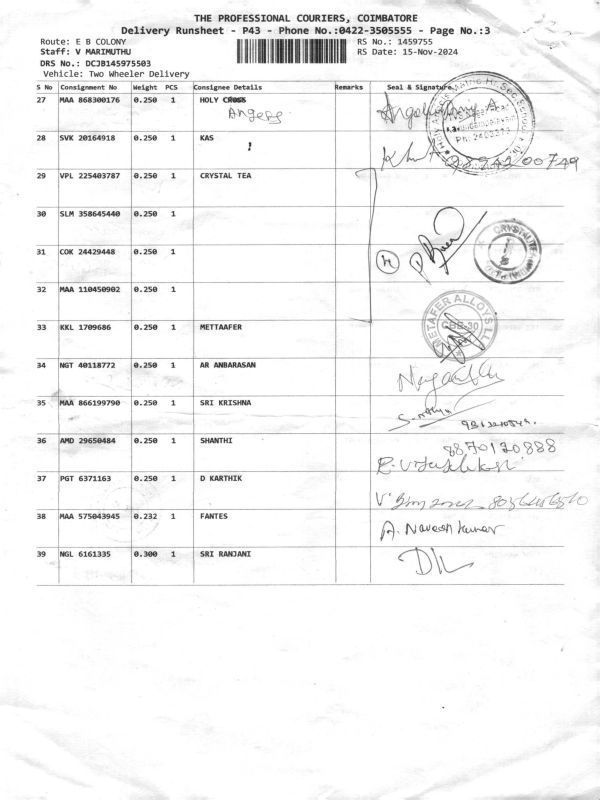 THE PROFESSIONAL COURIERS, COIMBATORE
Delivery Runsheet - P43 - Phone No.:0422-3505555 - Page No.:3
Route: E B COLONY RS No.: 1459755
Staff: V MARIMUTHU RS Date: 15-Nov-2024
DRS No.: DCJB145975503
Vehicle: Two Wheeler Delivery
S No Consignment No Weight PCS Consignee Details Remarks Seal & Signature
27 MAA 868300176 0.250 1 HOLY CROSS
Angels
28 SVK 20164918 0.250 1 KAS
29 VPL 225403787 0.250 1 CRYSTAL TEA
30 SLM 358645440 0.250 1
31 COK 24429448 0.250 1
32 MAA 110450902 0.250 1
METAFER ALLOYS
CBE-30
33 KKL 1709686 0.250 1 METTAAFER
34 NGT 40118772 0.250 1 AR ANBARASAN
35 MAA 866199790 0.250 1 SRI KRISHNA
36 AMD 29650484 0.250 1 SHANTHI 8870120888
37 PGT 6371163 0.250 1 D KARTHIK
38 MAA 575043945 0.232 1 FANTES A. Naveen kumar
39 NGL 6161335 0.300 1 SRI RANJANI